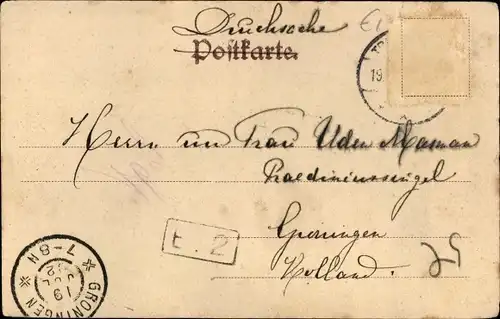 Drucksache
Postkarte.
19
Herrn un Frau Uden Masman
Praediniussingel
Groningen
Holland.
t. 2
75
GRONINGEN
7-8N
19